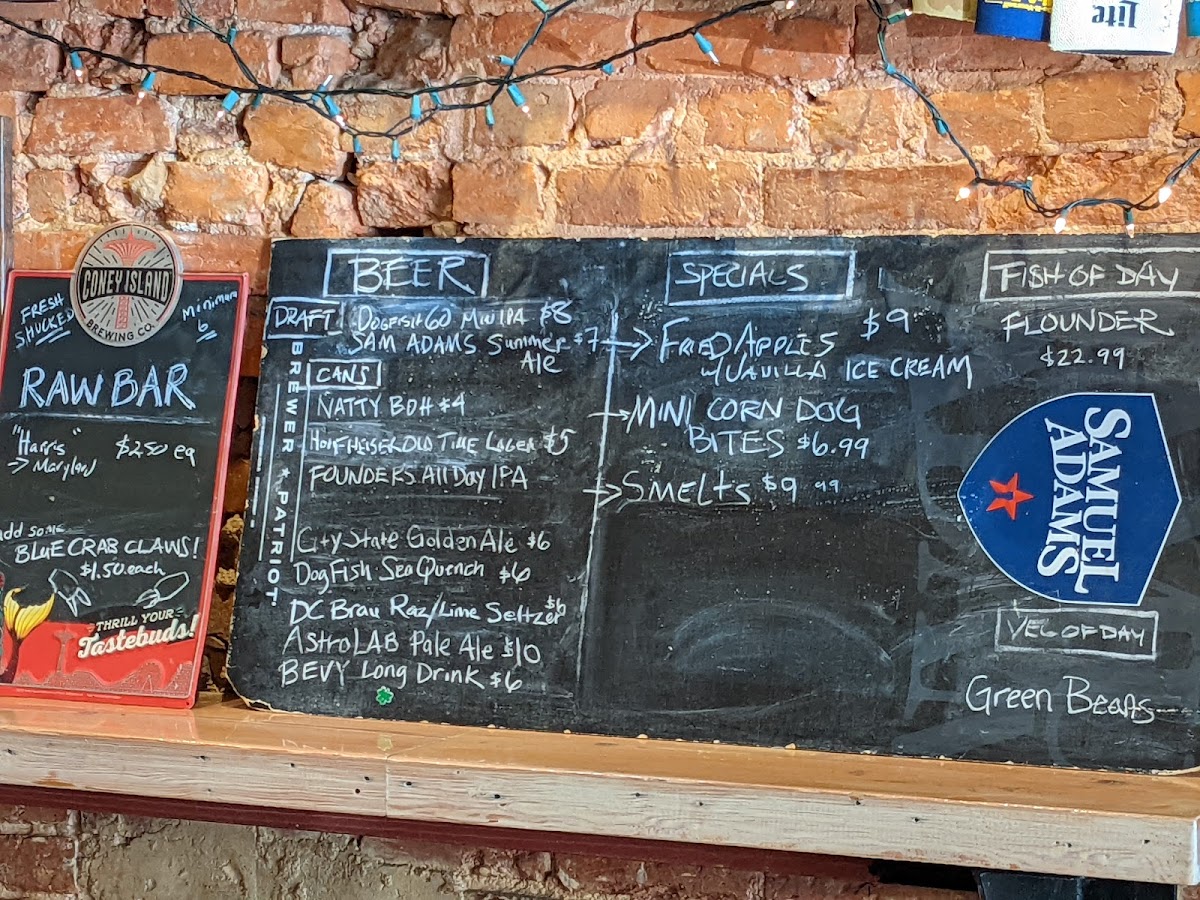 Lite
CONEY ISLAND
BREWING CO.
FRESH
SHUCKED
Minimum
6
RAW BAR
"Harris"
→ Maryland
$2.50 eq
add some
BLUE CRAB CLAWS!
$1.50 each
THRILL YOUR
Tastebuds!
BEER
DRAFT
DOGFISH 60 MIN IPA $8
SAM ADAMS Summer $7
Ale
BREWER ★ PATRIOT
CANS
NATTY BOH $4
OLD TIME LAGER $5
FOUNDERS All Day IPA
City State Golden Ale $6
DogFish SeaQuench $6
DC Brau Raz/Lime Seltzer $6
AstroLAB Pale Ale $10
BEVY Long Drink $6
SPECIALS
→ FRIED APPLES $9
w/ VANILLA ICE CREAM
→ MINI CORN DOG
BITES $6.99
→ Smelts $9.99
FISH OF DAY
FLOUNDER
$22.99
SAMUEL
ADAMS
VEG OF DAY
Green Beans